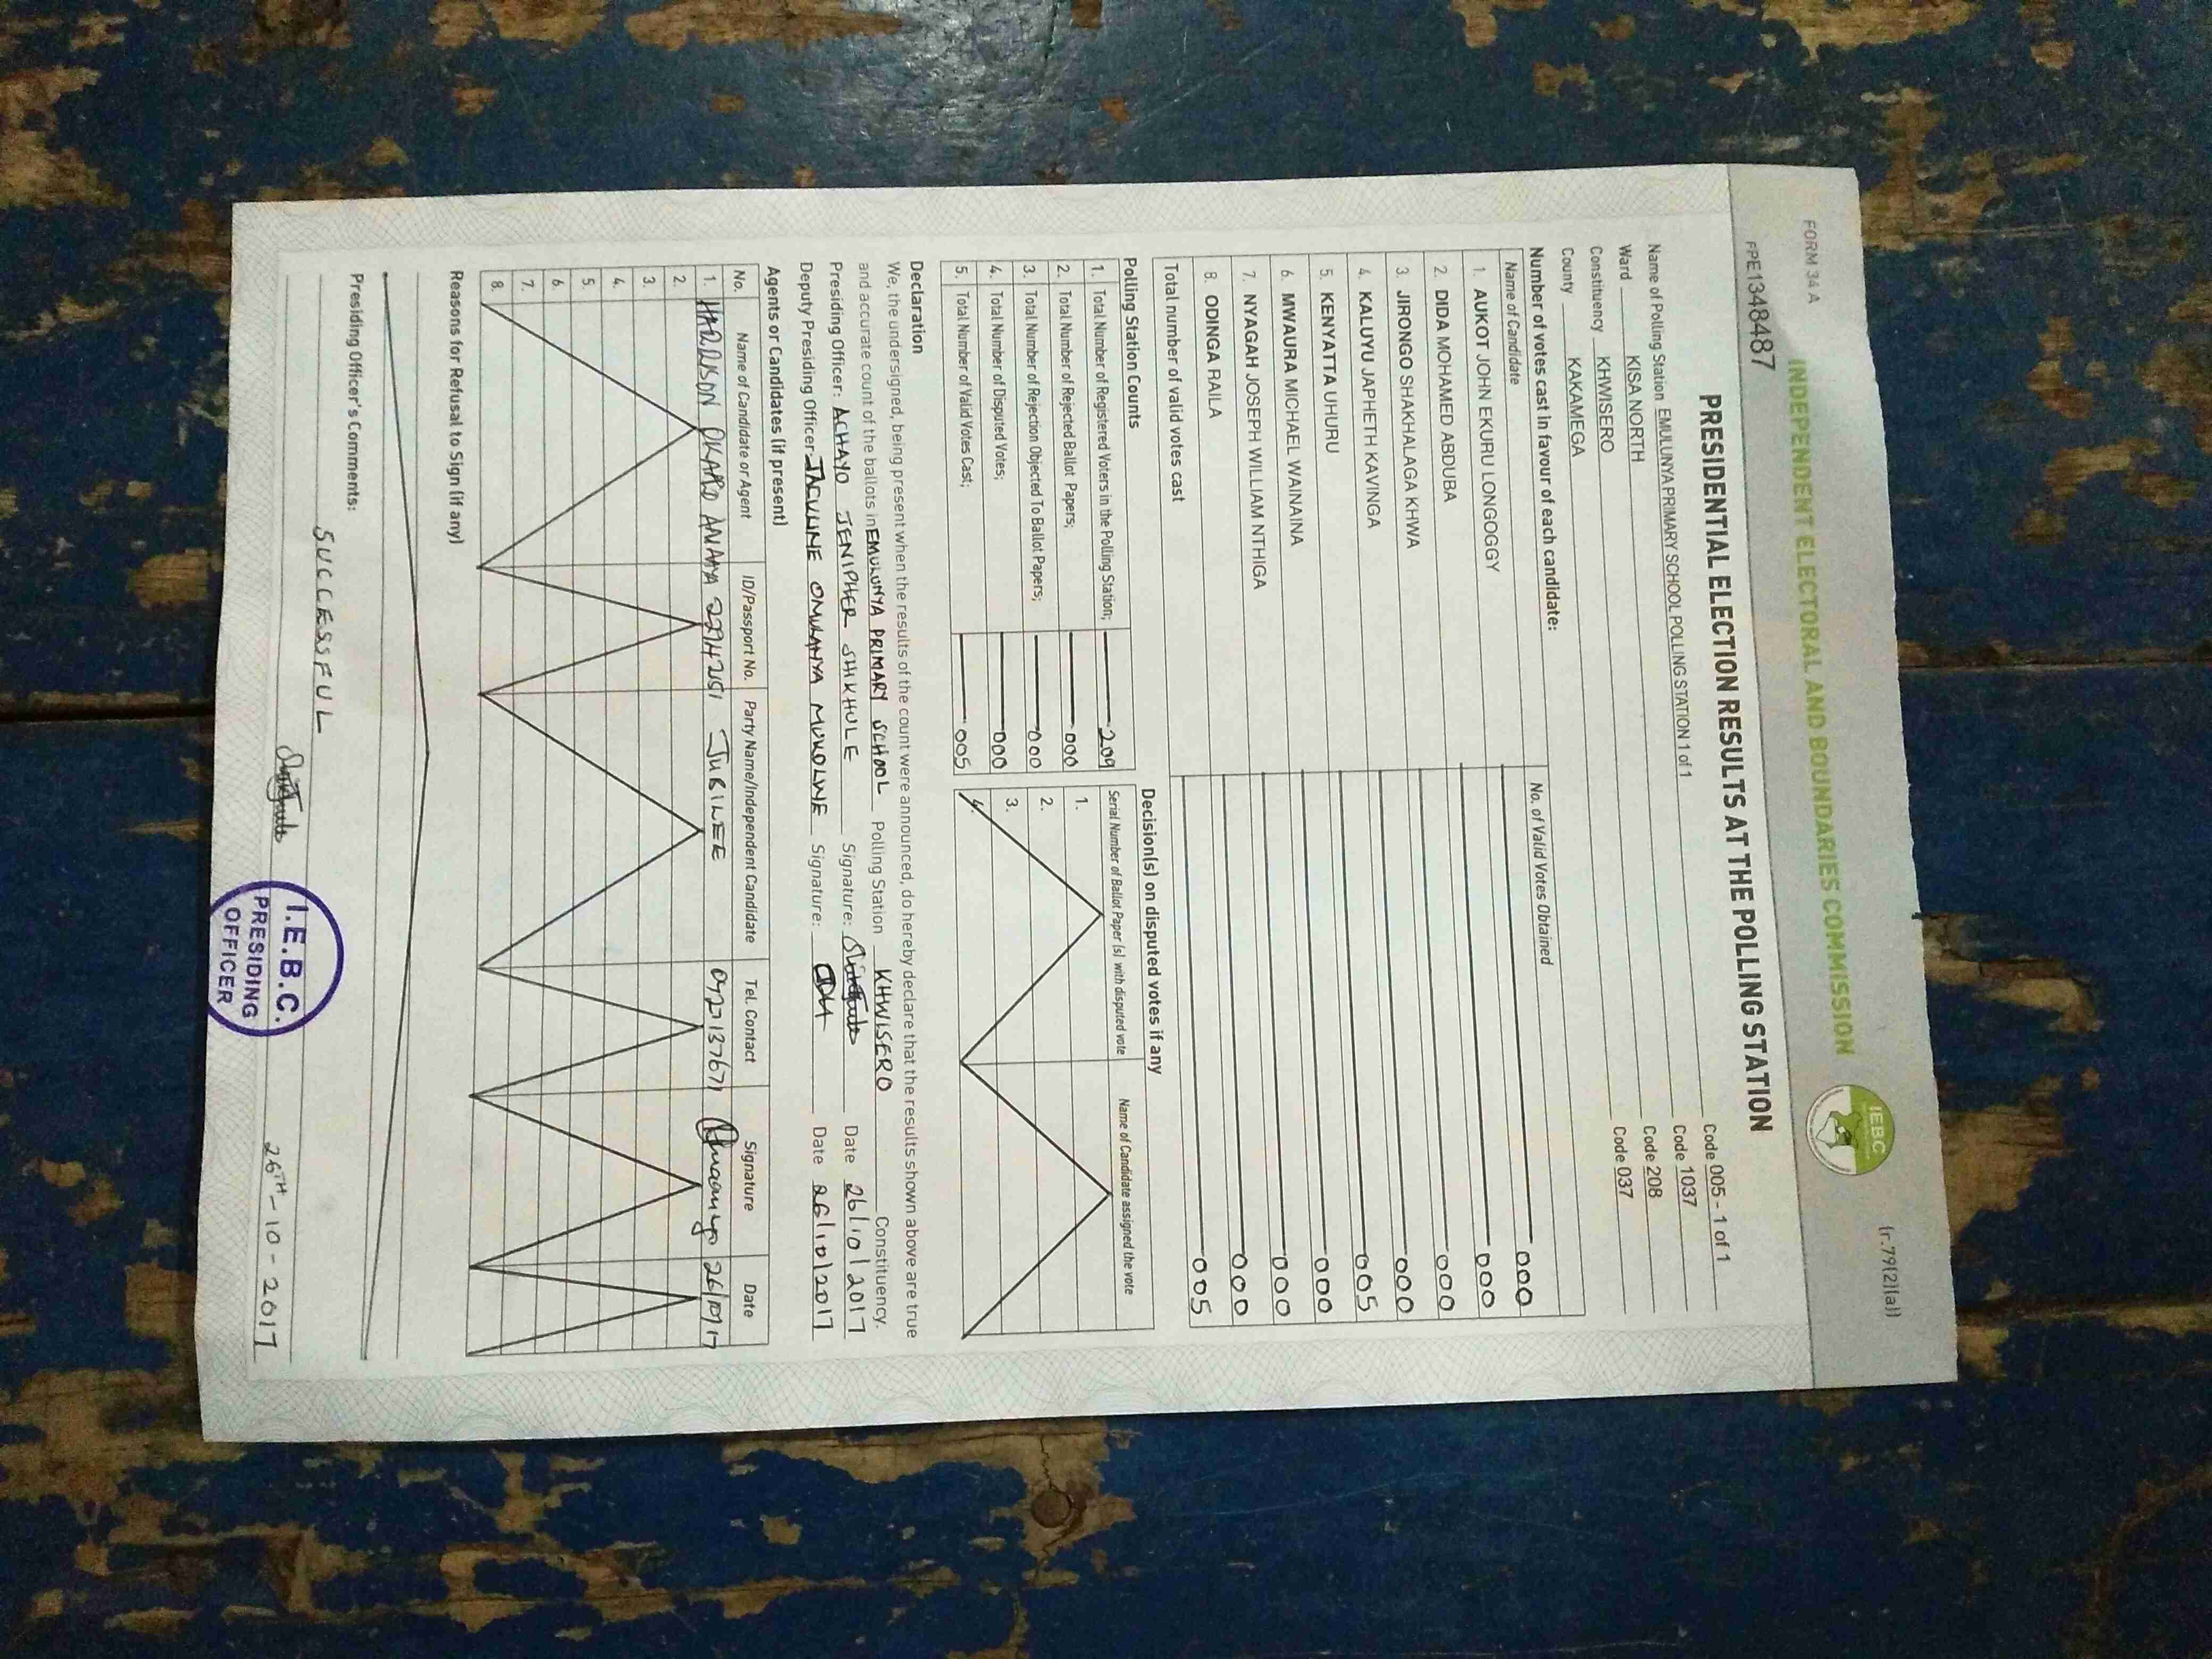 FORM 34 A
(r.79(2)(a))
INDEPENDENT ELECTORAL AND BOUNDARIES COMMISSION
IEBC
FPE1348487
PRESIDENTIAL ELECTION RESULTS AT THE POLLING STATION
Name of Polling Station EMULUNYA PRIMARY SCHOOL POLLING STATION 1 of 1 Code 005 - 1 of 1
Ward KISA NORTH Code 1037
Constituency KHWISERO Code 208
County KAKAMEGA Code 037
Number of votes cast in favour of each candidate:
Name of Candidate No. of Valid Votes Obtained
1. AUKOT JOHN EKURU LONGOGGY 000
2. DIDA MOHAMED ABDUBA 000
3. JIRONGO SHAKHALAGA KHWA 000
4. KALUYU JAPHETH KAVINGA 000
5. KENYATTA UHURU 005
6. MWAURA MICHAEL WAINAINA 000
7. NYAGAH JOSEPH WILLIAM NTHIGA 000
8. ODINGA RAILA 000
Total number of valid votes cast 005
Polling Station Counts
1. Total Number of Registered Voters in the Polling Station; 209
2. Total Number of Rejected Ballot Papers; 000
3. Total Number of Rejection Objected To Ballot Papers; 000
4. Total Number of Disputed Votes; 000
5. Total Number of Valid Votes Cast; 005
Decision(s) on disputed votes if any
Serial Number of Ballot Paper (s) with disputed vote Name of Candidate assigned the vote
1.
2.
3.
4.
Declaration
We, the undersigned, being present when the results of the count were announced, do hereby declare that the results shown above are true
and accurate count of the ballots in EMULUNYA PRIMARY SCHOOL Polling Station KHWISERO Constituency.
Presiding Officer: ACHAYO JENIPHER SHIKHULE Signature: Date 26/10/2017
Deputy Presiding Officer: JACULINE OMULANYA MUKOLWE Signature: Date 26/10/2017
Agents or Candidates (if present)
No. Name of Candidate or Agent ID/Passport No. Party Name/Independent Candidate Tel. Contact Signature Date
1. HARRISON OKARO ANAYA 22742151 JUBILEE 0727137671 26/10/17
2.
3.
4.
5.
6.
7.
8.
Reasons for Refusal to Sign (if any)
Presiding Officer's Comments:
SUCCESSFUL
26TH - 10 - 2017
I.E.B.C.
PRESIDING
OFFICER